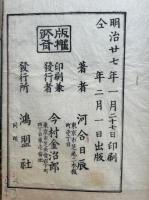 明治廿七年一月二十七日印刷
仝 年二月一日出版
版權所有
著者 河合日辰
印刷兼發行者 今村金次郎
發行所 鴻盟社